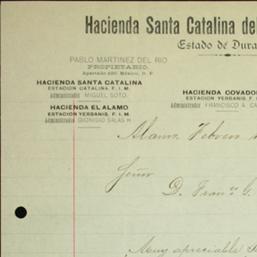 Hacienda Santa Catalina del
Estado de Dura
PABLO MARTINEZ DEL RIO
PROPIETARIO.
Apartado 250. México, D. F.
HACIENDA SANTA CATALINA
ESTACION CATALINA, F. I. M.
Administrador MIGUEL SOTO.
HACIENDA EL ALAMO
ESTACION YERBANIS, F. I. M.
Administrador DIONISIO SALAS H
HACIENDA COVADO
ESTACION YERBANIS, F. I.
Administrador FRANCISCO A. CA
Alamo, Febrero
Señor
D. Franco G.
Muy apreciable